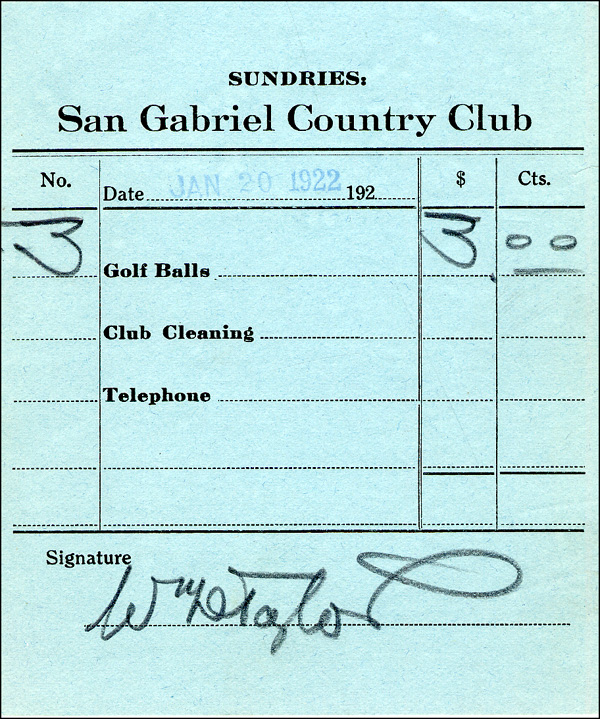 SUNDRIES:
San Gabriel Country Club
No. Date JAN 20 1922 192 $ Cts.
3 Golf Balls 3. 00
Club Cleaning
Telephone
Signature
Wm D Taylor